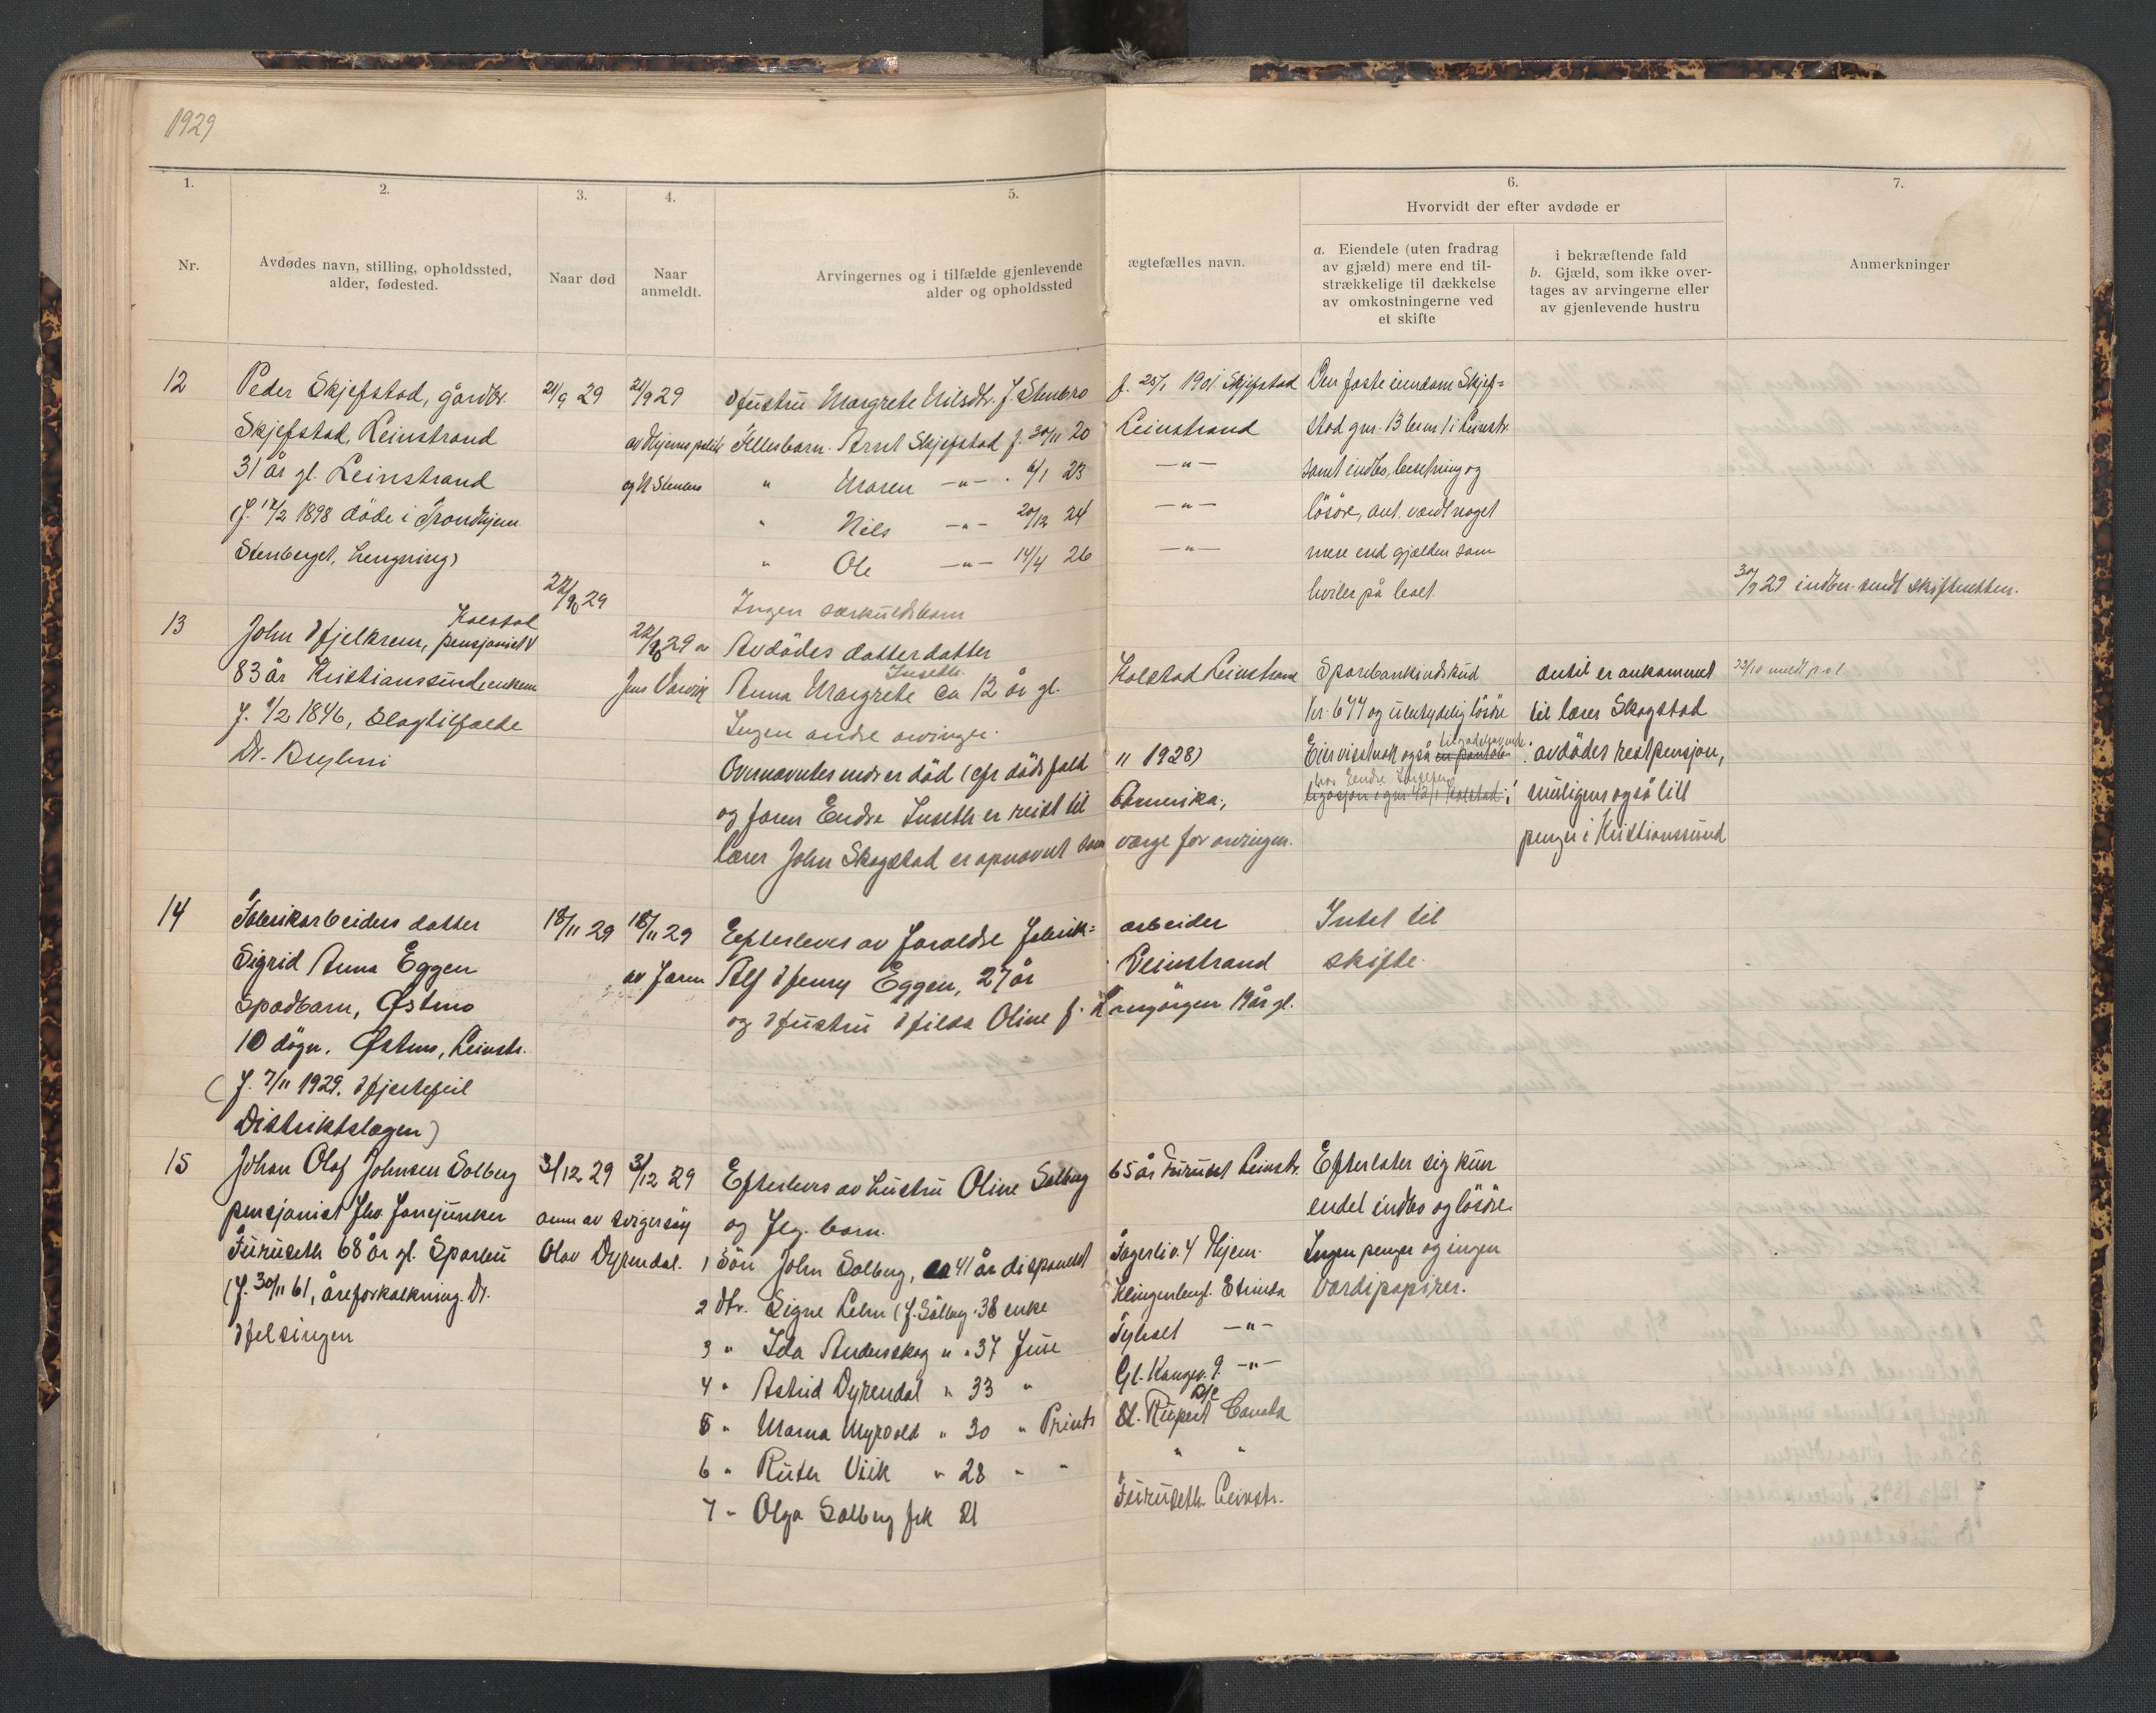 1929
1.
2.
3.
4.
5.
6.
7.
Nr.
Avdødes navn, stilling, opholdssted,
alder, fødested.
Naar død
Naar
anmeldt.
Arvingernes og i tilfælde gjenlevende
alder og opholdssted
ægtefælles navn.
Hvorvidt der efter avdøde er
a. Eiendele (uten fradrag
av gjæld) mere end til-
strækkelige til dækkelse
av omkostningerne ved
et skifte
i bekræftende fald
b. Gjæld, som ikke over-
tages av arvingerne eller
av gjenlevende hustru
Anmerkninger
12
Peder Skjefstad, gårdbr.
Skjefstad, Leinstrand
31 år gl. Leinstrand
(f. 12/2 1898 døde i Trondhjem
Stenberget, hengning)
21/9 29
21/9 29
og N Stenbro
Hustru Margrete Nilsdtr. f. Stenbro
Fellesbarn. Arnt Skjefstad f. 30/11 20
" Maren -"- 6/1 23
" Nils -"- 20/12 24
" Ole -"- 14/4 26
Ingen særkuldsbarn
f. 25/1 1901 Skjefstad
Leinstrand
-"-
-"-
-"-
Den faste eiendom Skjef=
stad gnr. 13 bnr 1 i Leinstr.
samt indbo, besetning og
løsøre, ant. værdt noget
mere end gjælden som
hviler på boet.
30/9 29 indber. sendt skifteretten.
13
Kolstad
John Hjelkrem, pensjonist
83 år Kristianssund enkem
f. 1/2 1846, Slagtilfælde
Dr.
22/10 29
22/10 29 av
Jens
Avdødes datterdatter
Inseth
Anna Margrete ca 12 år gl.
Ingen andre arvinger.
Overnævntes mor er død (cfr dødsfald
og faren Endre Inseth er reist til
lærer John Skogstad er opnævnt som
Kolstad Leinstrand
" 1928)
Amerika,
værge for arvingen.
Sparebankindskud
kr. 677 og ubetydelig løsøre
tilgodehavende
Eier visstnok også en pantob-
hos Endre Inseth
ligasjon i gnr 42/1 Kolstad
antil er ankommet
til lærer Skogstad
avdødes restpensjon,
muligens også litt
penger i Kristianssund
23/10 meldt
14
Fabrikarbeiders datter
Sigrid Anna Eggen
spædbarn, Østmo
10 døgn. Østmo, Leinstr.
(f. 7/11 1929. Hjertefeil
Distriktslægen)
18/11 29
18/11 29
av faren
Efterleves av foreldre fabrik=
Alf Henry Eggen, 27 år
og Hustru Hilda Oline f. Langørgen 19 år gl.
arbeider
Leinstrand
Intet til
skifte.
15
Johan Olaf Johnsen Solberg
pensjonist fhv. fanejunker
Furuseth 68 år gl. Sparbu
(f. 30/11 61, åreforkalkning. Dr.
Helsingen
3/12 29
3/12 29
anm av svigersøn
Olav Dyrendal.
Efterleves av hustru Oline Solberg
og flg. barn.
1 Søn John Solberg, 41 år disponent
2 dtr. Signe Lehn (f. Solberg 38 enke
3 " Ida Anderskog " " 37 frue
4 " Astrid Dyrendal " 33 "
5 " Marna Myrvold " 30 " Prints
6 " Ruth Viik " 28 " "
7 " Olga Solberg frk 21
65 år Furuset Leinstr.
Fagerliv. 4 Thjem.
Klingenbergl. Strinda
Tyholt -"-
Gl. Kongev. 9. -"-
St. Rupert Canada
" "
Furuseth Leinstr.
Efterlater sig kun
endel indbo og løsøre.
Ingen penger og ingen
verdipapirer.